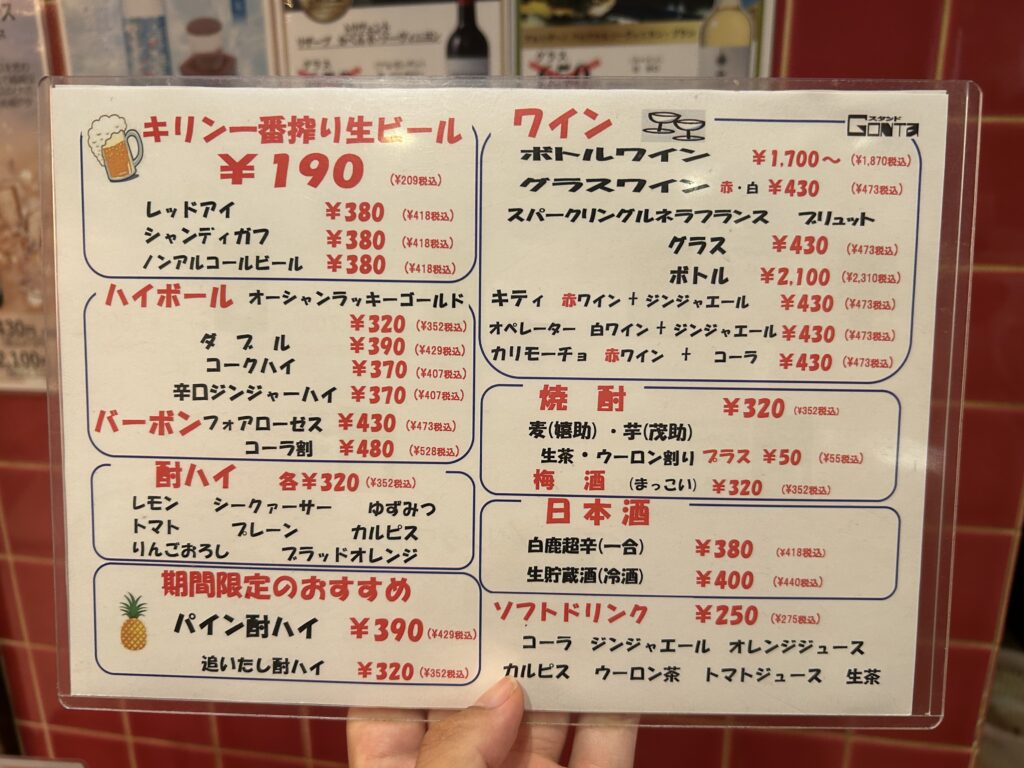 キリン一番搾り生ビール
¥190 (¥209税込)
レッドアイ ¥380 (¥418税込)
シャンディガフ ¥380 (¥418税込)
ノンアルコールビール ¥380 (¥418税込)
ハイボール オーシャンラッキーゴールド
¥320 (¥352税込)
ダブル ¥390 (¥429税込)
コークハイ ¥370 (¥407税込)
辛口ジンジャーハイ ¥370 (¥407税込)
バーボン フォアローゼス ¥430 (¥473税込)
コーラ割 ¥480 (¥528税込)
酎ハイ 各¥320 (¥352税込)
レモン シークァーサー ゆずみつ
トマト プレーン カルピス
りんごおろし ブラッドオレンジ
期間限定のおすすめ
パイン酎ハイ ¥390 (¥429税込)
追いだし酎ハイ ¥320 (¥352税込)
ワイン
スタンド
GONTa
ボトルワイン ¥1,700〜 (¥1,870税込)
グラスワイン 赤・白 ¥430 (¥473税込)
スパークリングルネラフランス ブリュット
グラス ¥430 (¥473税込)
ボトル ¥2,100 (¥2,310税込)
キティ 赤ワイン + ジンジャエール ¥430 (¥473税込)
オペレーター 白ワイン + ジンジャエール ¥430 (¥473税込)
カリモーチョ 赤ワイン + コーラ ¥430 (¥473税込)
焼酎 ¥320 (¥352税込)
麦(嬉助)・芋(茂助)
生茶・ウーロン割り プラス ¥50 (¥55税込)
梅酒 (まっこい) ¥320 (¥352税込)
日本酒
白鹿超辛(一合) ¥380 (¥418税込)
生貯蔵酒(冷酒) ¥400 (¥440税込)
ソフトドリンク ¥250 (¥275税込)
コーラ ジンジャエール オレンジジュース
カルピス ウーロン茶 トマトジュース 生茶